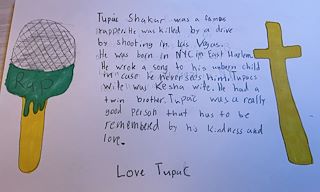 Tupac Shakur was a famous
rapper. He was killed by a drive
by shooting in Las Vegas.
He was born in NYC in East Harlem
He wrote a song to his unborn child
in case he never sees him. Tupacs
wife was Kesha wife. He had a
twin brother. Tupac was a really
good person that has to be
remembered by his kindness and
love.
Rap
Love Tupac